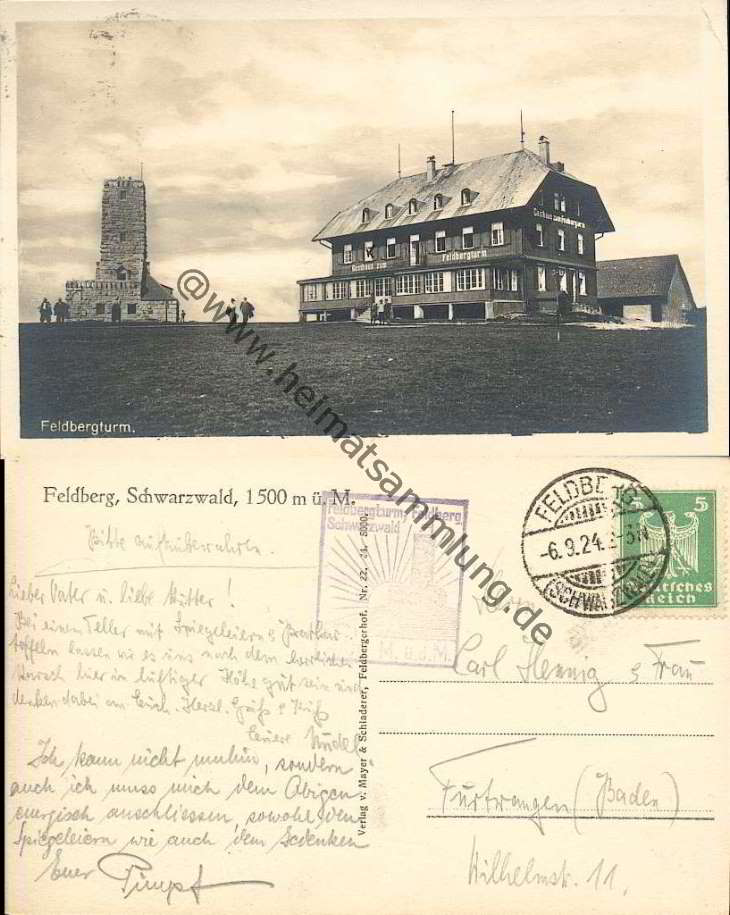 Gasthaus zum Feldbergturm
Gasthaus zum Feldbergturm
Feldbergturm.
@www.heimatsammlung.de
Feldberg, Schwarzwald, 1500 m ü. M.
Bitte aufzubewahren.
Feldbergturm Feldberg
Schwarzwald
M. ü. d. M.
FELDBERG
-6.9.24.
(SCHWARZWALD)
5 5
Deutsches
Reich
Lieber Vater u. liebe Mutter!
Bei einem Teller mit Spiegeleiern & Bratkar-
toffeln lassen wir es uns nach dem herrlichen
Marsch hier in luftiger Höhe gut sein und
denken dabei an Euch. Herzl. Grüße & Küsse
Euere
Ich kann nicht umhin, sondern
auch ich muss mich dem Obigen
energisch anschliessen sowohl den
Spiegeleiern wie auch dem Gedenken
Euer Pimpf
Verlag v. Mayer & Schladerer, Feldbergerhof, Nr. 22,
Carl Hennig & Frau
Furtwangen (Baden)
Wilhelmstr. 11.